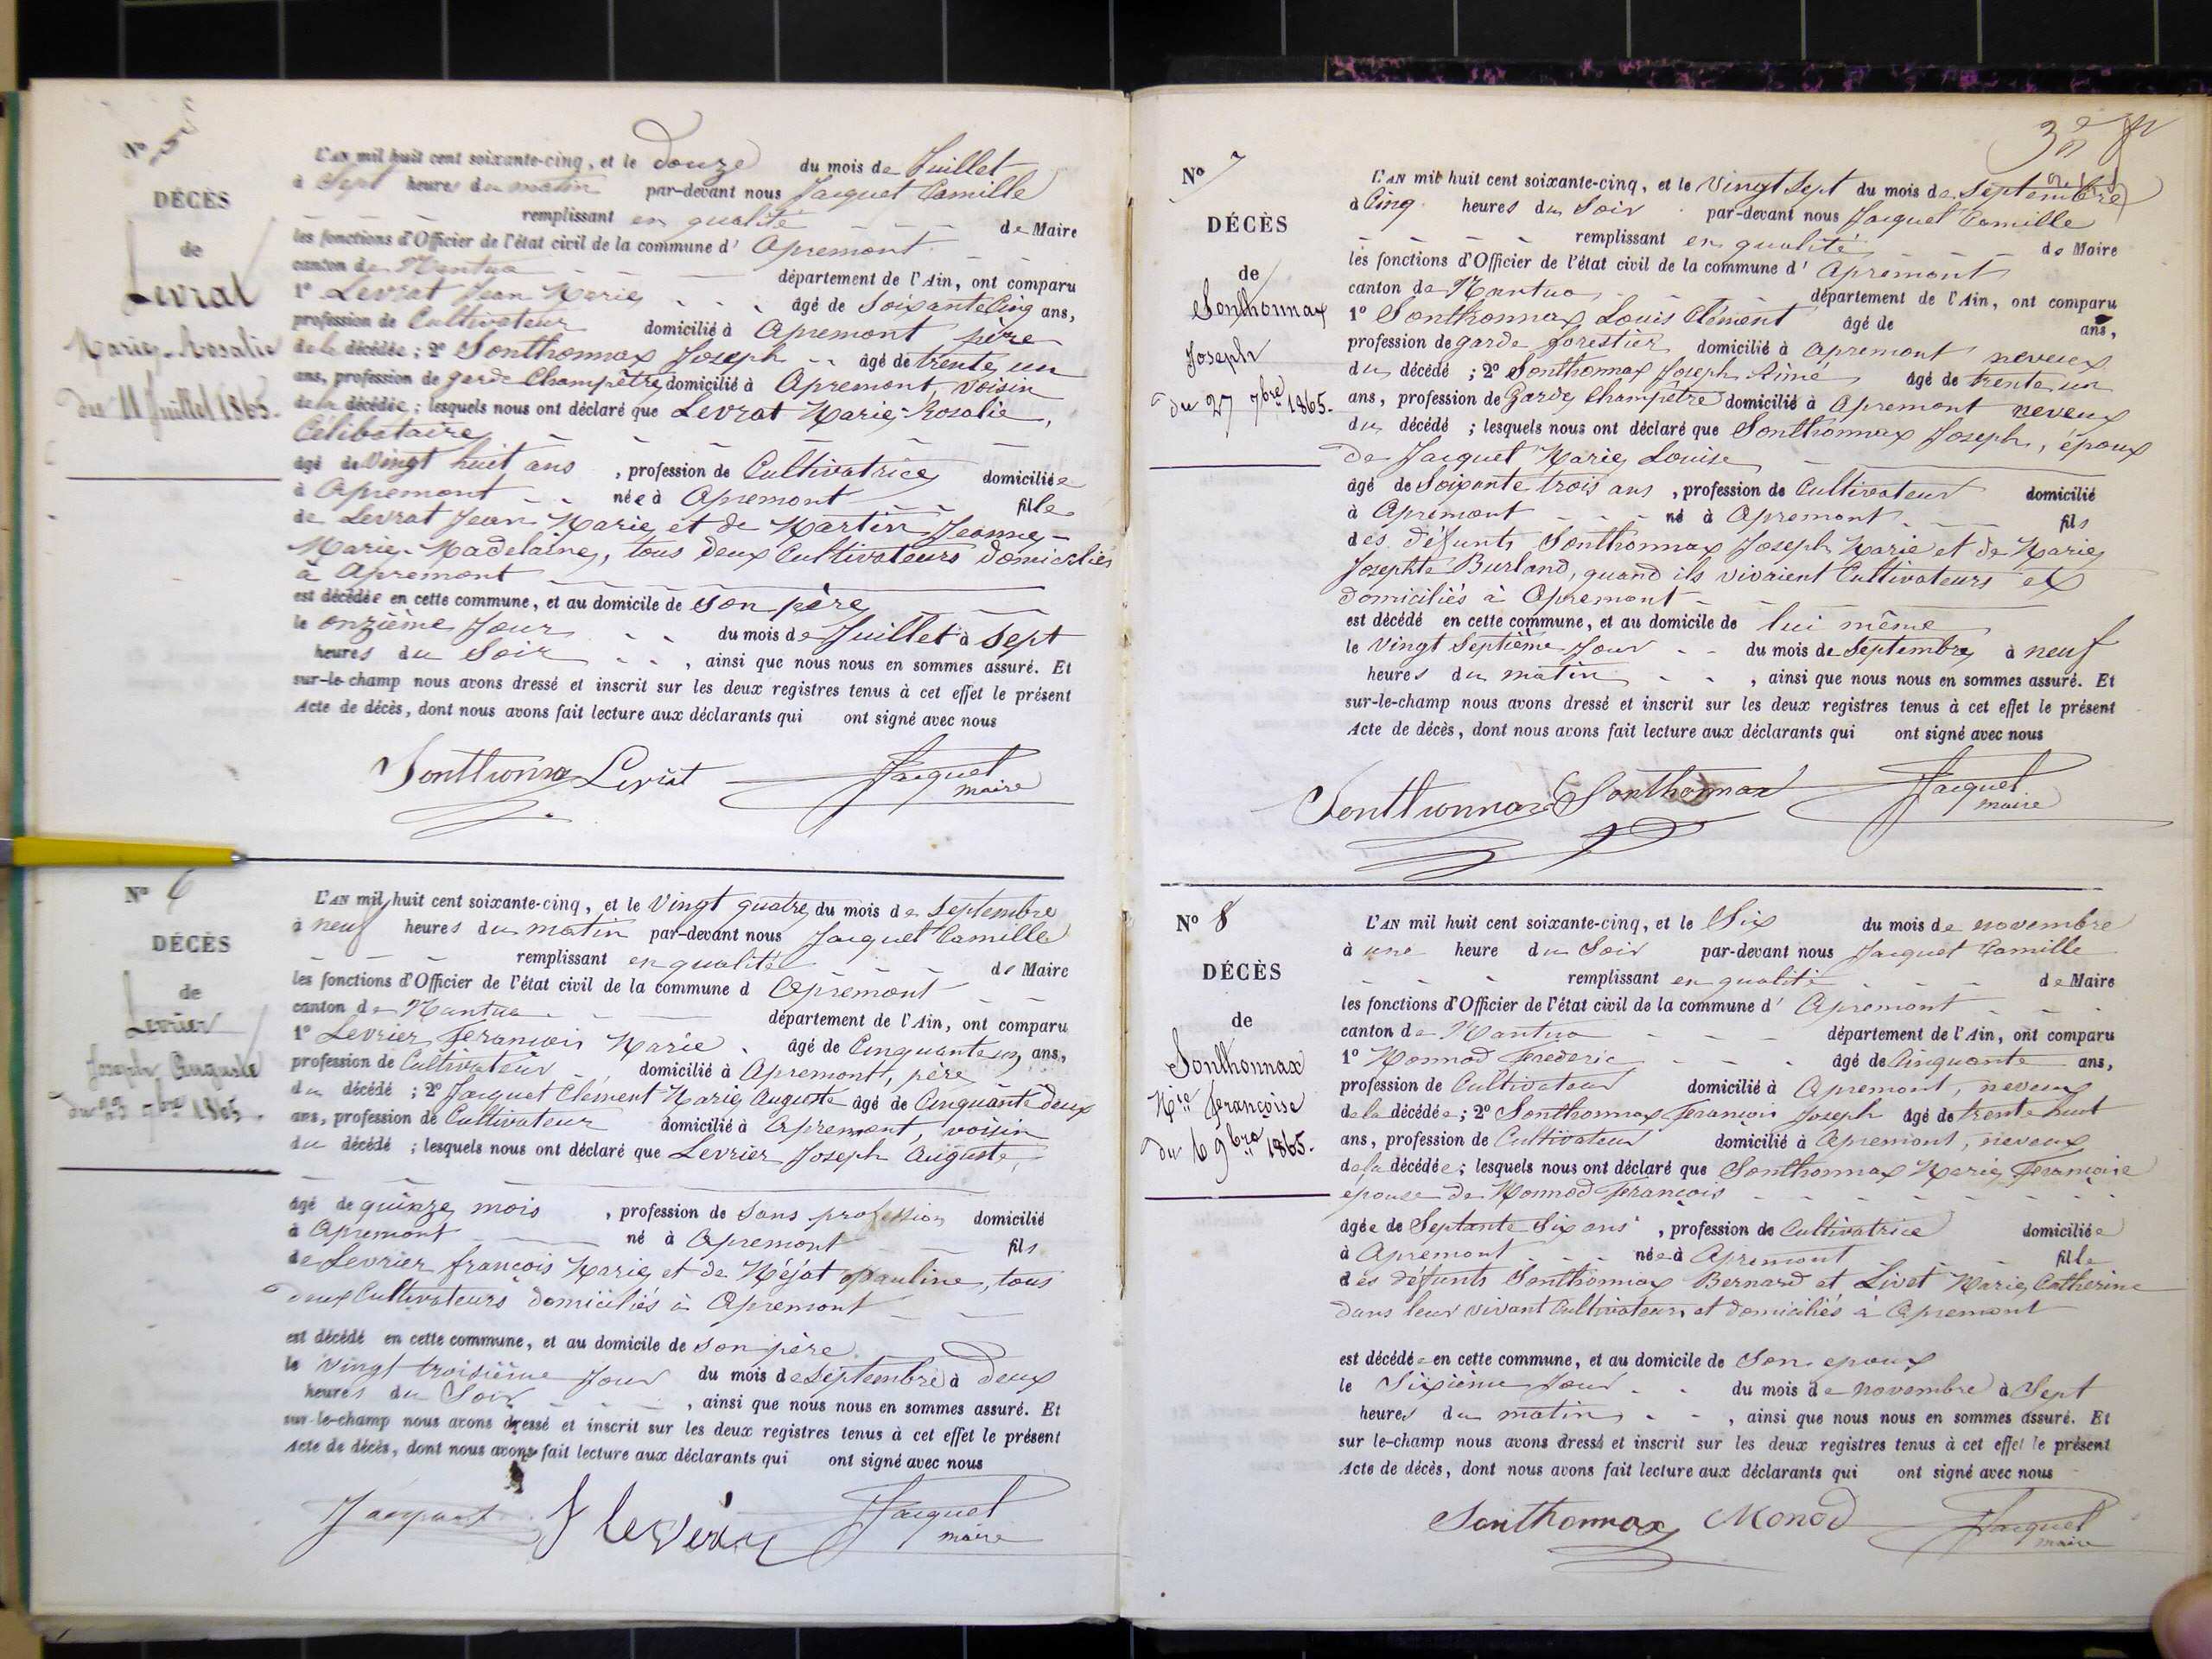 Nº 5
DÉCÈS
de
Levrat
Marie-Rosalie
du 11 Juillet 1865.
L'AN mil huit cent soixante-cinq, et le Douze du mois de Juillet
à Sept heures du matin par-devant nous Jacquet Camille
remplissant en qualité de Maire
les fonctions d'Officier de l'état civil de la commune d' Apremont
canton de Nantua département de l'Ain, ont comparu
1º Levrat Jean Marie âgé de Soixante Cinq ans,
profession de Cultivateur domicilié à Apremont père
de la décédée ; 2º Sonthonnax Joseph âgé de trente un
ans, profession de garde Champêtre domicilié à Apremont, voisin
de la décédée ; lesquels nous ont déclaré que Levrat Marie-Rosalie,
Célibataire
âgé de Vingt huit ans , profession de Cultivatrice domiciliée
à Apremont née à Apremont fille
de Levrat Jean Marie et de Martin Jeanne-
Marie-Madelaine, tous deux Cultivateurs domiciliés
à Apremont
est décédée en cette commune, et au domicile de son père
le onzième Jour du mois de Juillet à Sept
heures du Soir , ainsi que nous nous en sommes assuré. Et
sur-le-champ nous avons dressé et inscrit sur les deux registres tenus à cet effet le présent
Acte de décès, dont nous avons fait lecture aux déclarants qui ont signé avec nous
Sonthonnax Levrat Jacquet
maire
Nº 6
DÉCÈS
de
Levrier
Joseph Auguste
du 23 7bre 1865.
L'AN mil huit cent soixante-cinq, et le Vingt quatre du mois de Septembre
à neuf heures du matin par-devant nous Jacquet Camille
remplissant en qualité de Maire
les fonctions d'Officier de l'état civil de la commune d Apremont
canton de Nantua département de l'Ain, ont comparu
1º Levrier François Marie âgé de Cinquante un ans,
profession de Cultivateur domicilié à Apremont, père
du décédé ; 2º Jacquet Clément Marie Auguste âgé de Cinquante deux
ans, profession de Cultivateur domicilié à Apremont, voisin
du décédé ; lesquels nous ont déclaré que Levrier Joseph Auguste,
âgé de quinze mois , profession de Sans profession domicilié
à Apremont né à Apremont fils
de Levrier françois Marie et de Néjat Pauline, tous
deux Cultivateurs domiciliés à Apremont
est décédé en cette commune, et au domicile de son père
le vingt troisième Jour du mois de Septembre à deux
heures du Soir , ainsi que nous nous en sommes assuré. Et
sur-le-champ nous avons dressé et inscrit sur les deux registres tenus à cet effet le présent
Acte de décès, dont nous avons fait lecture aux déclarants qui ont signé avec nous
Jacquet Jacquet
maire
Nº 7
DÉCÈS
de
Sonthonnax
Joseph
du 27 7bre 1865.
L'AN mil huit cent soixante-cinq, et le Vingt Sept du mois de Septembre
à Cinq heures du Soir par-devant nous Jacquet Camille
remplissant en qualité de Maire
les fonctions d'Officier de l'état civil de la commune d' Apremont
canton de Nantua département de l'Ain, ont comparu
1º Sonthonnax Louis Clément âgé de ans,
profession de garde forestier domicilié à Apremont neveux
du décédé ; 2º Sonthonnax Joseph Aimé âgé de trente un
ans, profession de Garde Champêtre domicilié à Apremont neveux
du décédé ; lesquels nous ont déclaré que Sonthonnax Joseph, époux
de Jacquet Marie Louise
âgé de Soixante trois ans , profession de Cultivateur domicilié
à Apremont né à Apremont fils
des défunts Sonthonnax Joseph Marie et de Marie
Josephte Burland, quand ils vivaient Cultivateurs et
domiciliés à Apremont
est décédé en cette commune, et au domicile de lui même
le Vingt Septième Jour du mois de Septembre à neuf
heures du matin , ainsi que nous nous en sommes assuré. Et
sur-le-champ nous avons dressé et inscrit sur les deux registres tenus à cet effet le présent
Acte de décès, dont nous avons fait lecture aux déclarants qui ont signé avec nous
Sonthonnax Sonthonnax Jacquet
maire
Nº 8
DÉCÈS
de
Sonthonnax
Mie Françoise
du 6 9bre 1865.
L'AN mil huit cent soixante-cinq, et le Six du mois de novembre
à une heure du Soir par-devant nous Jacquet Camille
remplissant en qualité de Maire
les fonctions d'Officier de l'état civil de la commune d' Apremont
canton de Nantua département de l'Ain, ont comparu
1º Monnod Frederic âgé de Cinquante ans,
profession de Cultivateur domicilié à Apremont, neveux
de la décédée ; 2º Sonthonnax François Joseph âgé de trente huit
ans, profession de Cultivateur domicilié à Apremont, neveux
de la décédée ; lesquels nous ont déclaré que Sonthonnax Marie Françoise
épouse de Monnod François
âgée de Septante Six ans , profession de Cultivatrice domiciliée
à Apremont née à Apremont fille
des défunts Sonthonnax Bernard et Livet Marie Catherine
dans leur vivant Cultivateurs et domiciliés à Apremont
est décédée en cette commune, et au domicile de Son epoux
le Sixième Jour du mois de novembre à Sept
heures du matin , ainsi que nous nous en sommes assuré. Et
sur le-champ nous avons dressé et inscrit sur les deux registres tenus à cet effet le présent
Acte de décès, dont nous avons fait lecture aux déclarants qui ont signé avec nous
Sonthonnax Monod Jacquet
maire